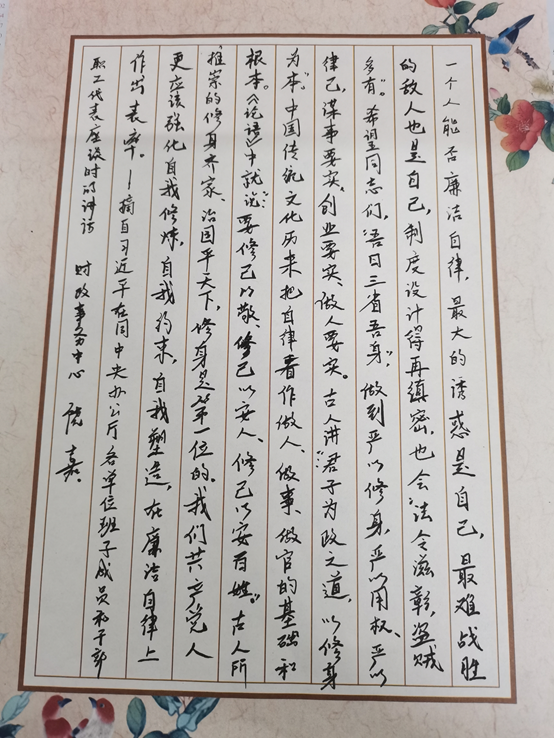 一个人能否廉洁自律，最大的诱惑是自己，最难战胜
的敌人也是自己，制度设计得再缜密，也会“法令滋彰，盗贼
多有”。希望同志们，“吾日三省吾身”，做到严以修身、严以用权、严以
律己，谋事要实、创业要实、做人要实。古人讲：“君子为政之道，以修身
为本”。中国传统文化历来把自律看作做人、做事、做官的基础和
根本。《论语》中就说：要“修己以敬、修己以安人、修己以安百姓”。古人所
推崇的修身齐家、治国平天下，修身是第一位的。我们共产党人
更应该强化自我修炼，自我约束，自我塑造，在廉洁自律上
作出表率。—摘自习近平在同中央办公厅各单位班子成员和干部
职工代表座谈时的讲话 财政事务中心 嘉